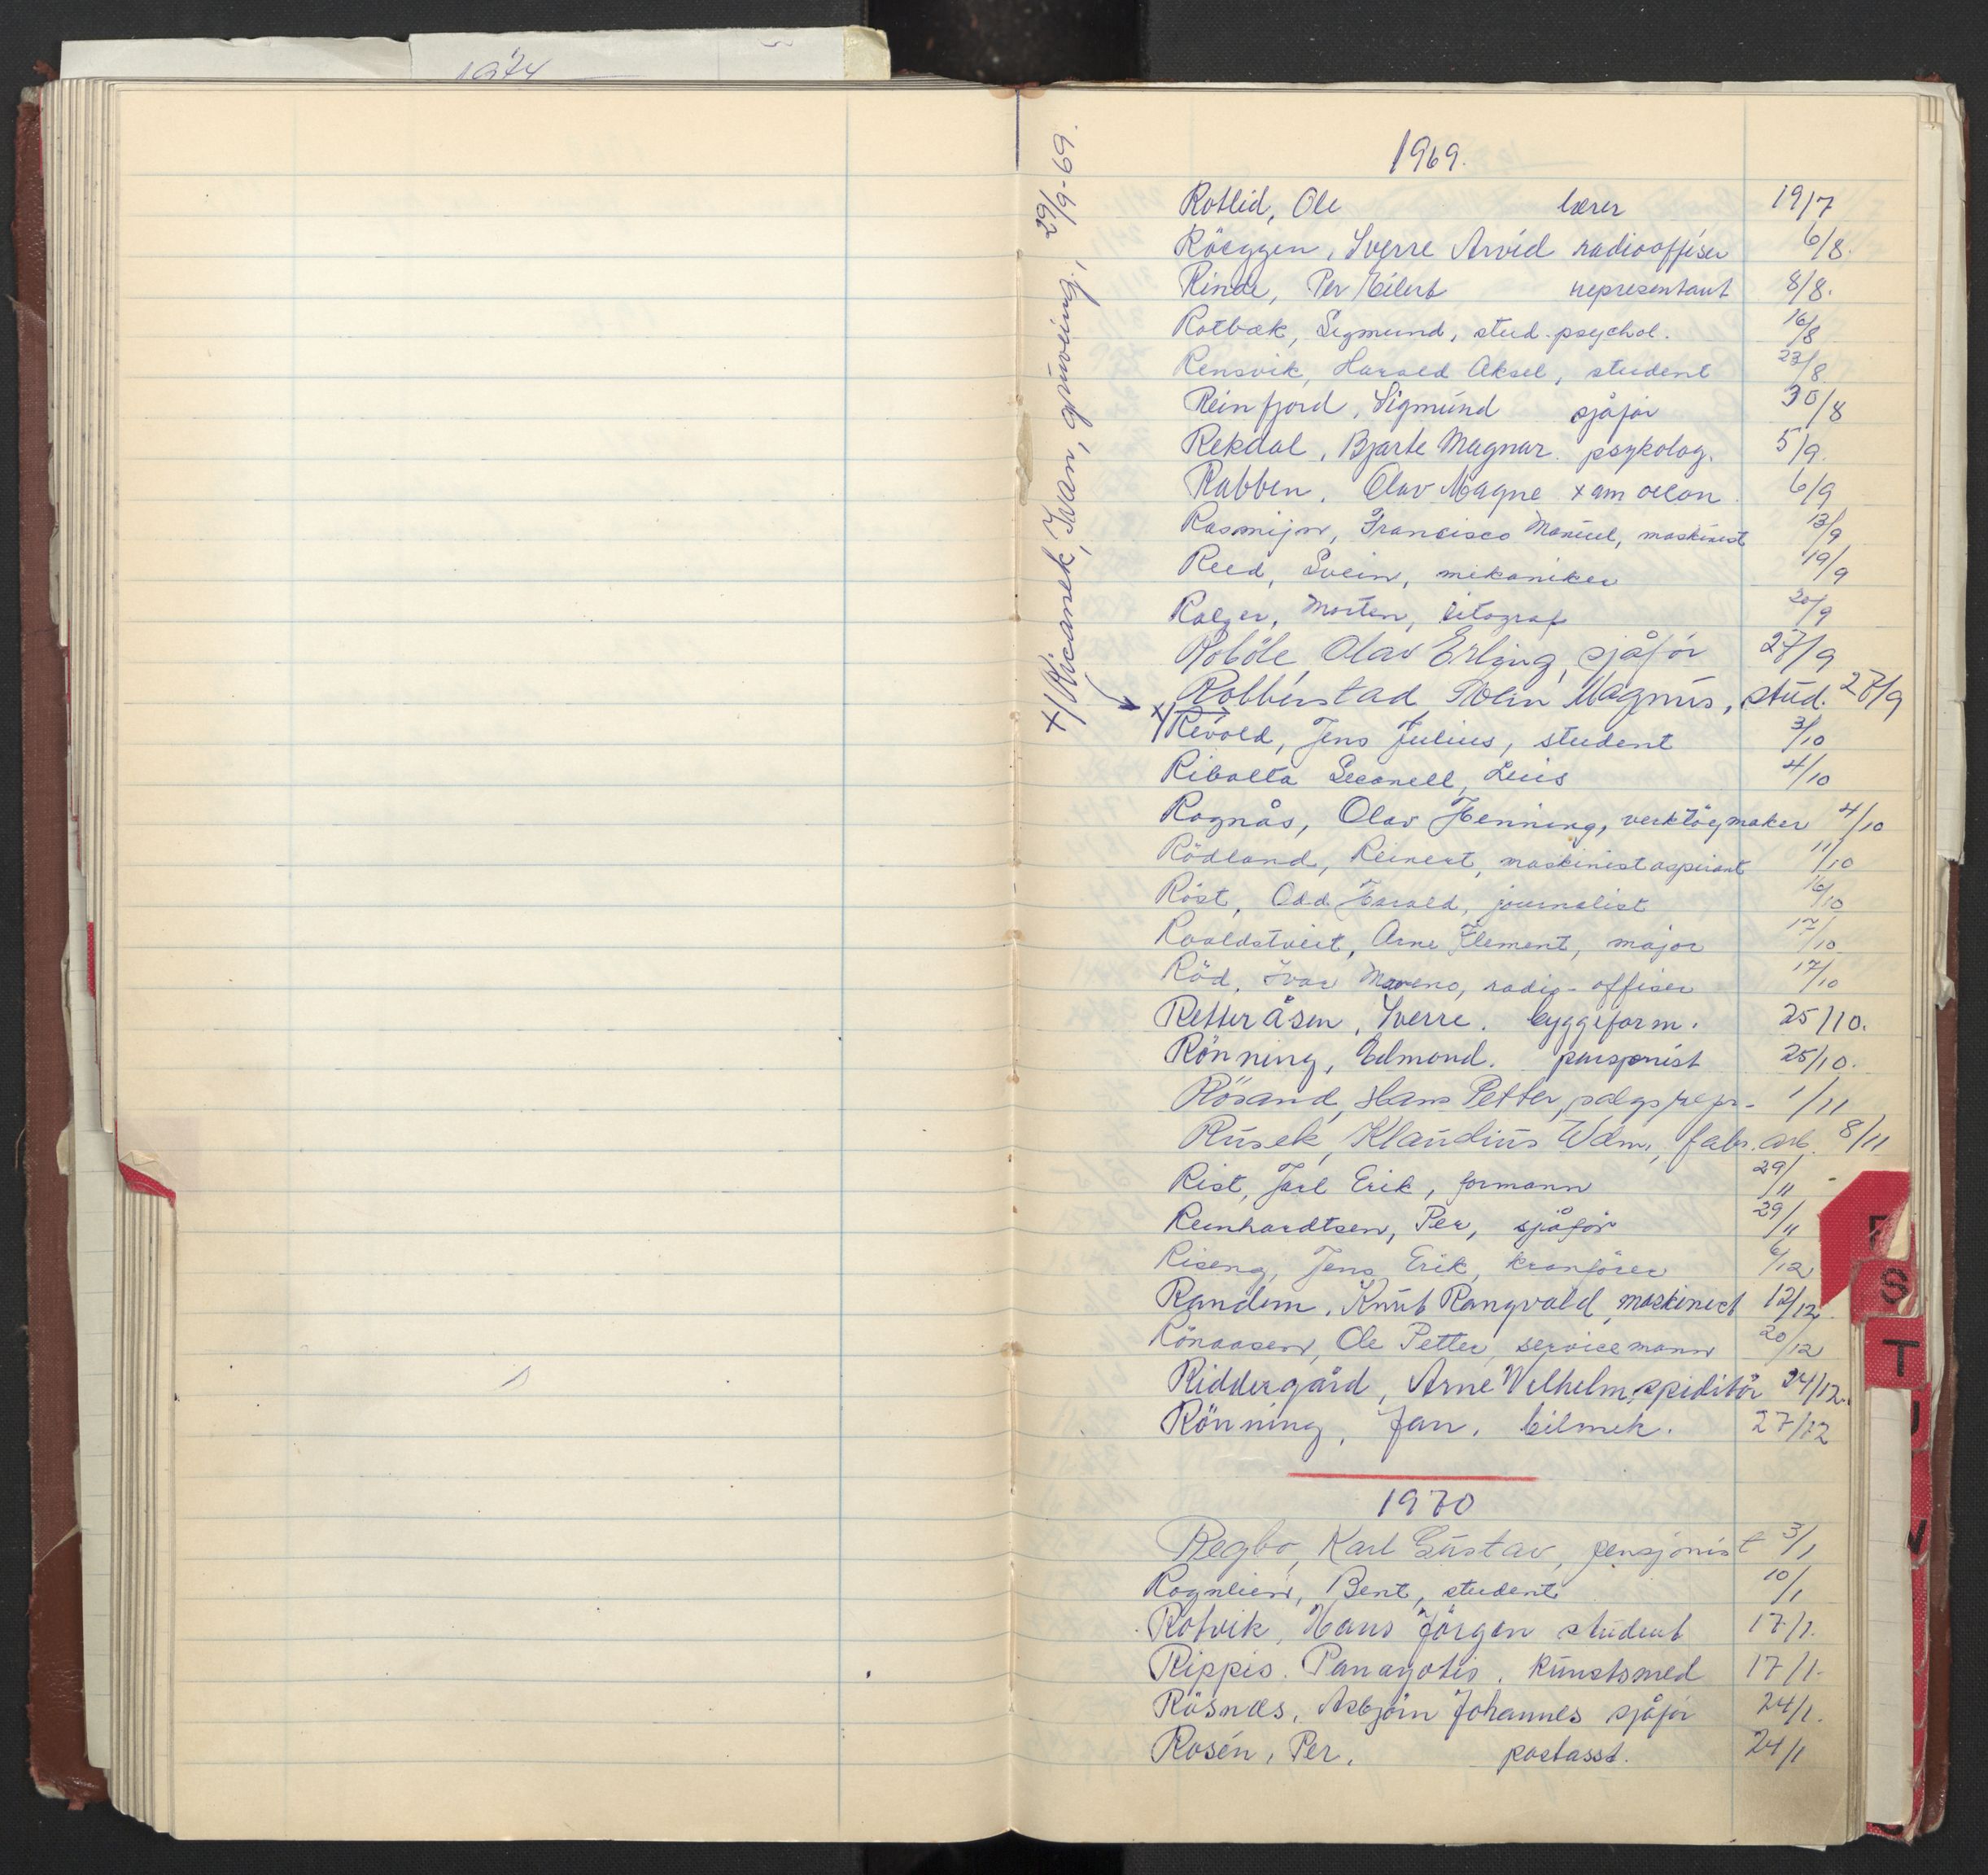 1974
+/ Ricanek, Ivan, gruveing., 29/9-69.
1969.
Rotlid, Ole lærer 19/7
Röeggen, Sverre Arvid radiooffiser 6/8.
Rinde, Per Eilert representant 8/8.
Rotbæk, Sigmund, stud. psychol. 16/8
Rensvik, Harald Aksel, student 23/8
Reinfjord, Sigmund sjåför 30/8
Rekdal, Bjarte Magnar. psykolog. 5/9.
Rabben, Olav Magne 6/9
Rasmijn, Francisco Manuel, maskinist 13/9
Reed, Svein, mekaniker 19/9
Rolger, Morten, litograf 20/9
Roböle, Olav Erling, sjåför 27/9
Robberstad, Svein Magnus, stud. 27/9
x/ Revold, Jens Julius, student 3/10
Ribalta Secanell, Luis 4/10
Rognås, Olav Henning, verktöymaker 4/10
Rödland, Reinert, maskinistaspirant 11/10
Röst, Odd Harald, journalist 16/10
Roaldstveit, Arne Klement, major 17/10
Röd, Ivar Moreno, radio-offiser 17/10
Retteråsen, Sverre. byggeform. 25/10.
Rönning, Edmond. pensjonist 25/10.
Rösand, Hans Petter, salgsrepr. 1/11
Rusek, Klaudius Wdm., fabr. arb. 8/11
Rist, Jarl Erik, formann 29/11
Reinhardtsen, Per, sjåför 29/11
Riseng, Jens Erik, kranförer 6/12
Randem, Knut Rangvald, maskinist 12/12.
Rönaasen, Ole Petter, servicemann 20/12
Riddergård, Arne Wilhelm, spiditör 24/12.
Rönning, Jan, bilmek. 27/12
1970
Regbo, Karl Gustav, pensjonist 3/1
Rognlien, Bent, student 10/1
Rotvik, Hans Jörgen student 17/1.
Rippis. Panayotis. kunstsmed 17/1.
Rösnæs, Asbjörn Johannes sjåför 24/1.
Rosén, Per. postasst. 24/1
S
T
U
V